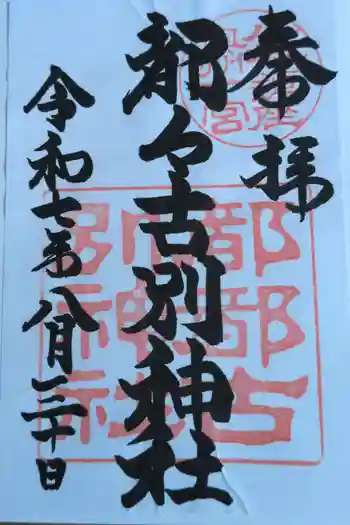 奉拝
都々古別神社
令和七年八月三十日
都都古別神社